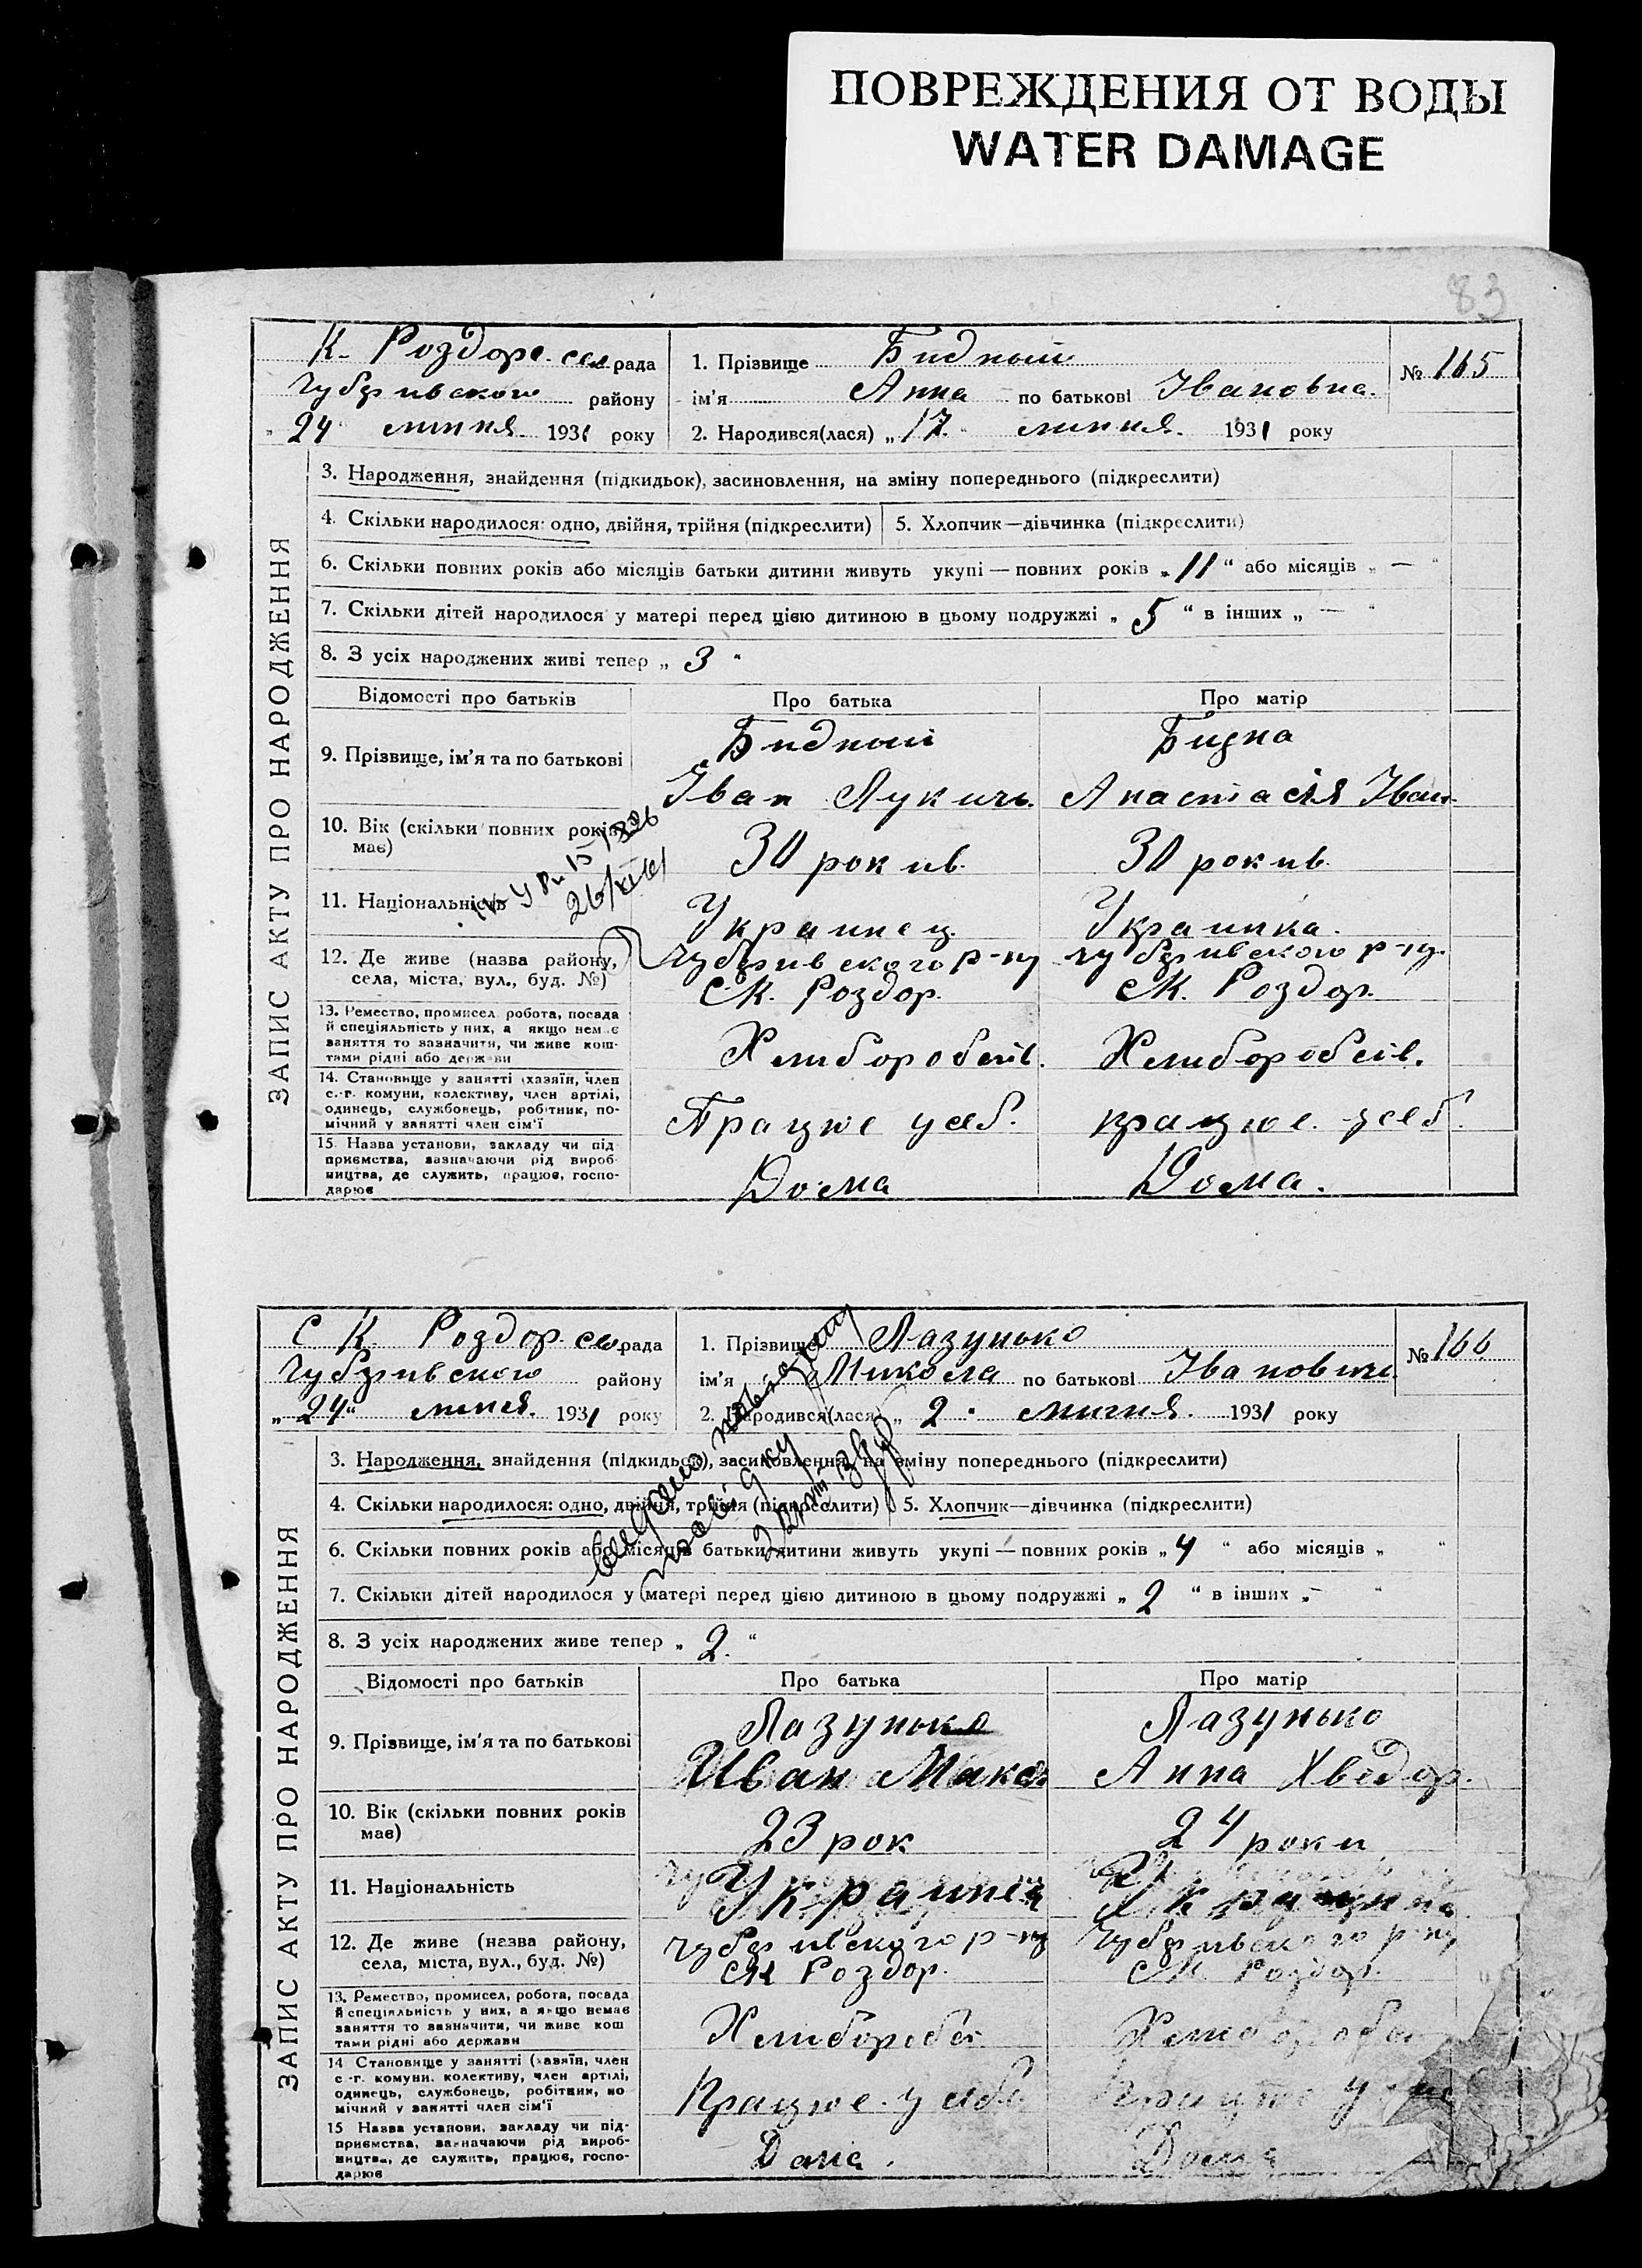 ПОВРЕЖДЕНИЯ ОТ ВОДЫ
WATER DAMAGE
83
К. Роздоре. сел рада
Чубаривского району
„24" липня 1931 року
1. Прізвище Бидный
ім'я Анна по батькові Івановна.
2. Народився(лася) „17." липня. 1931 року
№ 165
ЗАПИС АКТУ ПРО НАРОДЖЕННЯ
3. Народження, знайдення (підкидьок), засиновлення, на зміну попереднього (підкреслити)
4. Скільки народилося: одно, двійня, трійня (підкреслити)
5. Хлопчик—дівчинка (підкреслити)
6. Скільки повних років або місяців батьки дитини живуть укупі—повних років „11" або місяців „—"
7. Скільки дітей народилося у матері перед цією дитиною в цьому подружжі „5" в інших „—"
8. З усіх народжених живі тепер „3"
Відомості про батьків Про батька Про матір
9. Прізвище, ім'я та по батькові
Бидный Бидна
Іван Лукичь. Анастасія Іван.
10. Вік (скільки повних років має)
30 рокив. 30 рокив.
11. Національність
Украинец Украинка.
12. Де живе (назва району,
села, міста, вул., буд. №)
Чубаривского р-ну Чубаривского р-ну.
С.К. Роздор. С.К. Роздор.
13. Ремество, промисел, робота, посада
й спеціяльність у них, а якщо немає
заняття то зазначити, чи живе кош-
тами рідні або держави
Хлиборобств. Хлиборобств.
14. Становище у занятті (хазяїн, член
с.-г. комуни, колективу, член артілі,
одинець, службовець, робітник, по-
мічний у занятті член сім'ї
Працює у себ. працює у себ.
15. Назва установи, закладу чи під
приємства, зазначаючи рід вироб-
ництва, де служить, працює, госпо-
дарює
Дома Дома.
С К Роздор. сел. рада
Чубаривского району
„24" липня. 1931 року
1. Прізвище Лазунько
ім'я Микола по батькові Іванович
2. Народився(лася) „2." липня. 1931 року
№ 166
ЗАПИС АКТУ ПРО НАРОДЖЕННЯ
3. Народження, знайдення (підкидьок), засиновлення, на зміну попереднього (підкреслити)
4. Скільки народилося: одно, двійня, трійня (підкреслити)
5. Хлопчик—дівчинка (підкреслити)
6. Скільки повних років або місяців батьки дитини живуть укупі—повних років „4" або місяців „ "
7. Скільки дітей народилося у матері перед цією дитиною в цьому подружжі „2" в інших „—"
8. З усіх народжених живе тепер „2."
Відомості про батьків Про батька Про матір
9. Прізвище, ім'я та по батькові
Лазунько Лазунько
Иван Макс. Анна Хведор.
10. Вік (скільки повних років
має)
23 рок 24 роки
11. Національність
Украинец
12. Де живе (назва району,
села, міста, вул., буд. №)
Чубаривского р-ну Чубаривского р-ну
СК Роздор. СК. Роздор.
13. Ремество, промисел, робота, посада
й спеціяльність у них, а якщо немає
заняття то зазначити, чи живе кош
тами рідні або держави
Хлибороб. Хлибороб
14 Становище у занятті (хазяїн, член
с.-г. комуни, колективу, член артілі,
одинець, службовець, робітник, по
мічний у занятті член сім'ї
Працює у себе Працює у
15 Назва установи, закладу чи під-
приємства, зазначаючи рід вироб-
ництва, де служить, працює, госпо-
дарює
Дома. Дома